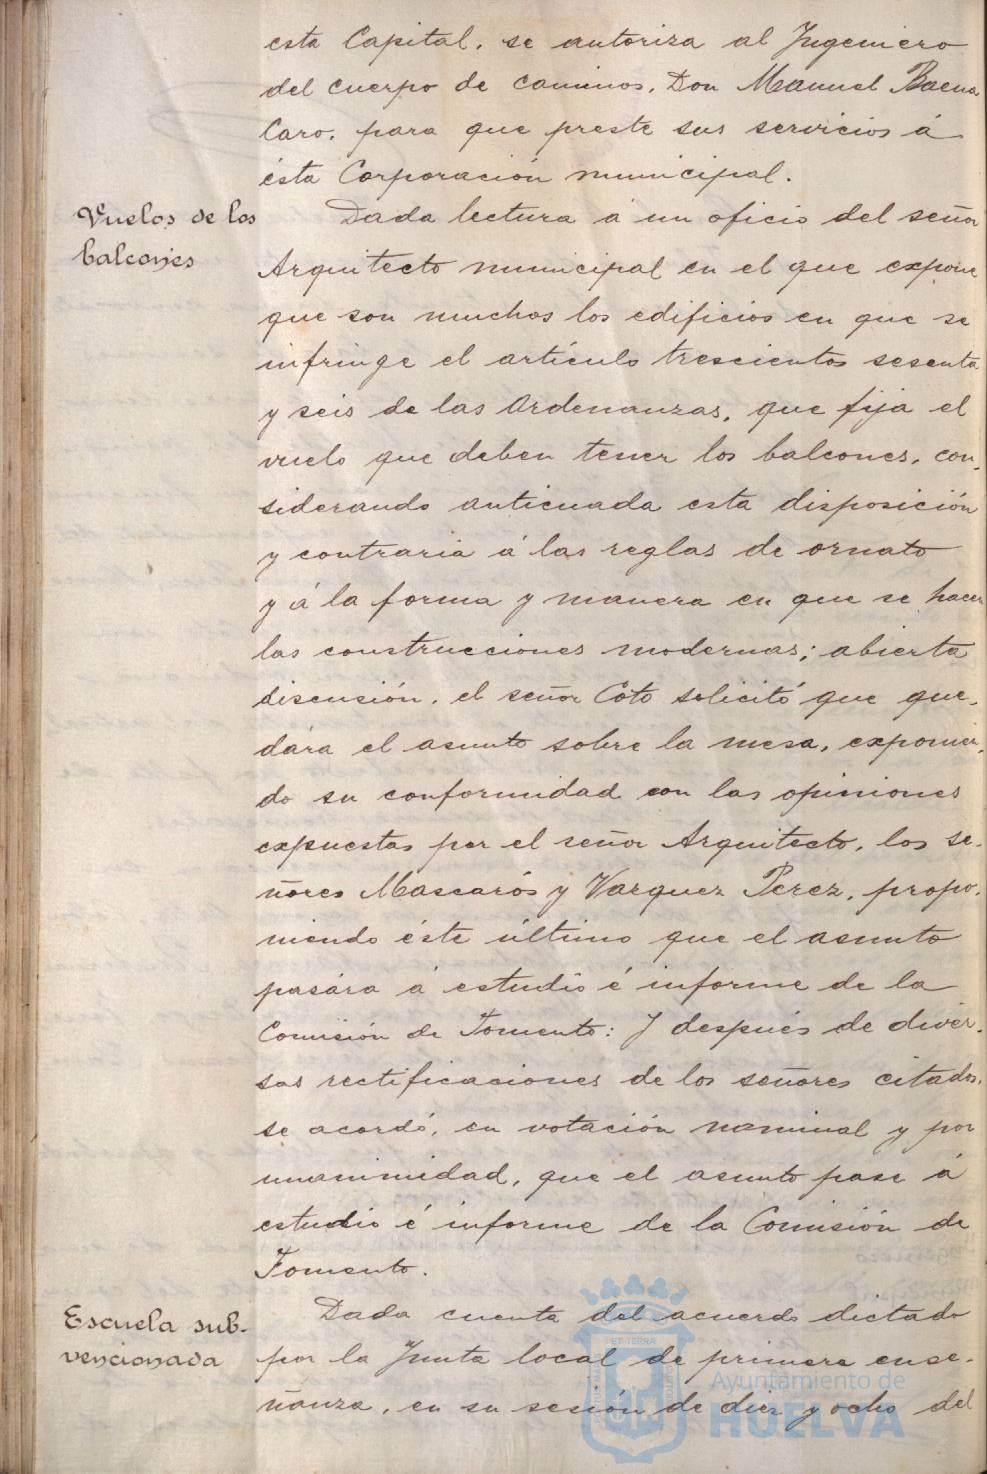 esta Capital, se autoriza al Ingeniero
del cuerpo de caminos, Don Manuel Baena
Caro, para que preste sus servicios á
ésta Corporación municipal.
Vuelos de los
balcones
Dada lectura á un oficio del señor
Arquitecto municipal en el que expone
que son muchos los edificios en que se
infringe el artículo trescientos sesenta
y seis de las Ordenanzas, que fija el
vuelo que deben tener los balcones, con-
siderando anticuada esta disposición
y contraria á las reglas de ornato
y á la forma y manera en que se hacen
las construcciones modernas; abierta
discusión, el señor Coto solicitó que que-
dára el asunto sobre la mesa, exponien-
do su conformidad con las opiniones
expuestas por el señor Arquitecto, los se-
ñores Mascarós y Vazquez Perez, propo-
niendo éste último que el asunto
pasára á estudio é informe de la
Comisión de Fomento: Y después de diver-
sas rectificaciones de los señores citados,
se acordó, en votación nominal y por
unanimidad, que el asunto pase á
estudio é informe de la Comisión de
Fomento.
Escuela sub-
vencionada
Dada cuenta del acuerdo dictado
por la Junta local de primera ense-
ñanza, en su sesión de diez y ocho del
ET TERRA
Ayuntamiento de
HUELVA